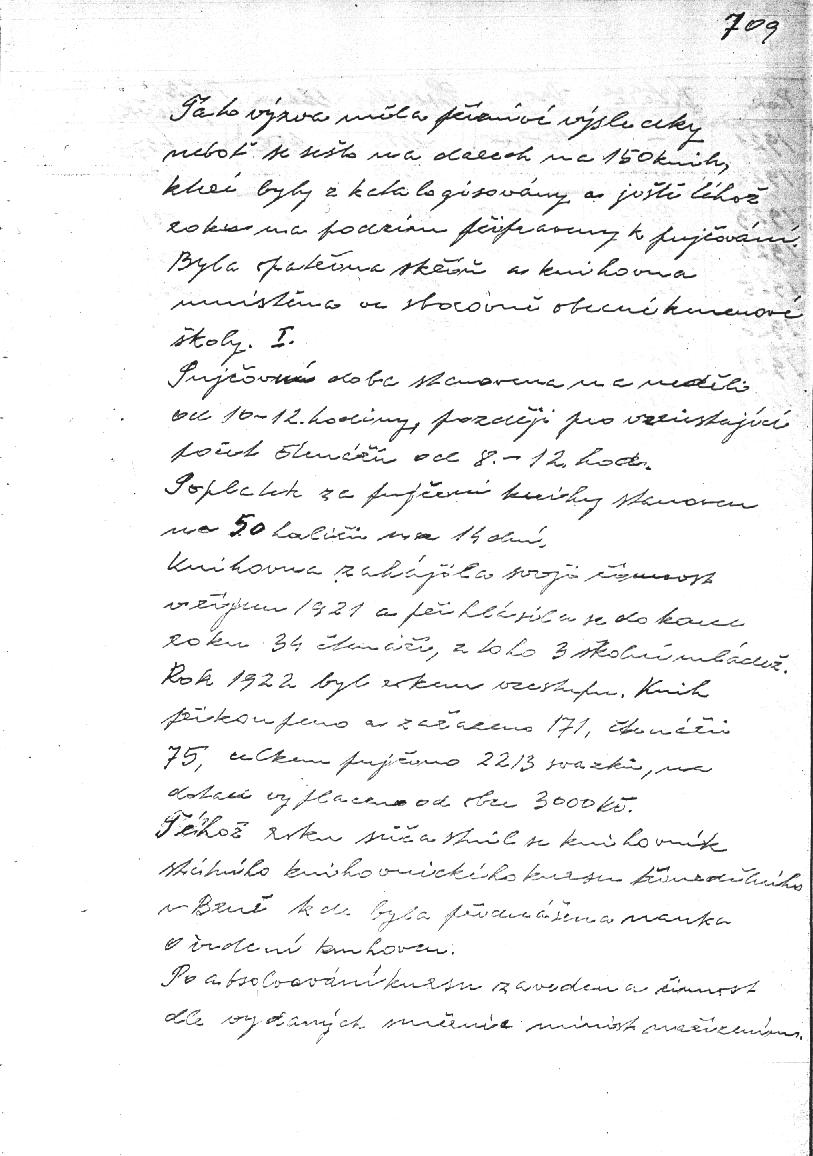 709
Tato výzva měla příznivé výsledky
neboť se sešlo na darech na 150 knih,
které byly zkatalogisovány a ještě téhož
roku na podzim připraveny k půjčování.
Byla opatřena skříň a knihovna
umístěna ve sborovně obecné kmenové
školy. I.
Půjčovní doba stanovena na neděli
od 10-12. hodiny, později pro vzrůstající
počet čtenářů od 8. - 12. hod.
Poplatek za půjčení knihy stanoven
na 50 haléřů na 14 dní.
Knihovna zahájila svoji činnost
v říjnu 1921 a přihlásilo se do konce
roku 34 čtenářů, z toho 3 školní mládež.
Rok 1922 byl rokem vzestupu. Knih
přikoupeno a zařazeno 171, čtenářů
75, celkem půjčeno 2213 svazků, na
dotaci vyplaceno od obce 3000 Kč.
Téhož roku súčastnil se knihovník
státního knihovnického kursu
v Brně kde byla přednášena nauka
o vedení knihoven.
Po absolvování kursu zavedena činnost
dle vydaných směrnic minist. nařízením.